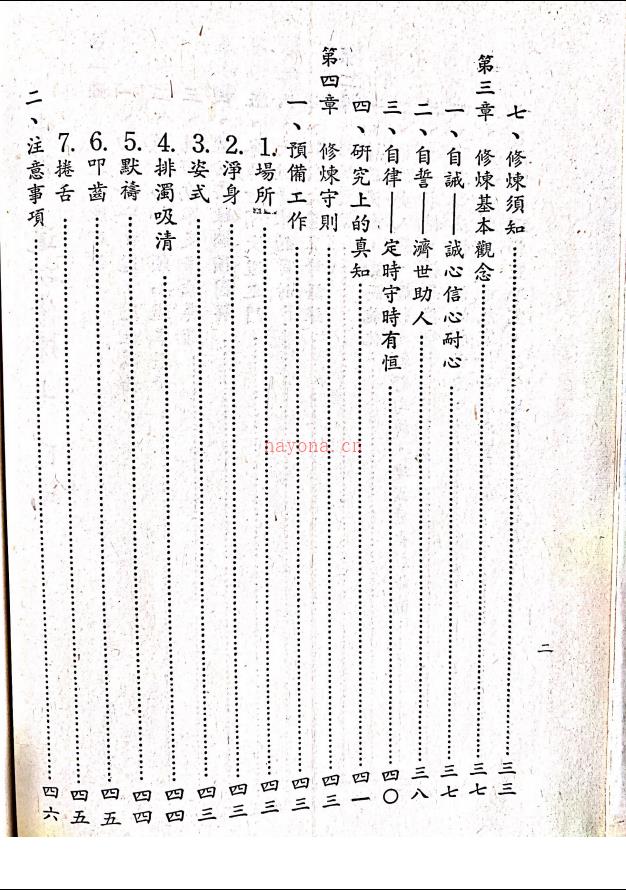 七、修煉須知……三三
第三章 修煉基本觀念……三七
一、自誠——誠心信心耐心……三七
二、自誓——濟世助人……三八
三、自律——定時守時有恒……四〇
四、研究上的真知……四一
第四章 修煉守則……四三
一、預備工作……四三
1.場所……四三
2.淨身……四三
3.姿式……四三
4.排濁吸清……四四
5.默禱……四四
6.叩齒……四五
7.捲舌……四五
二、注意事項……四六
二
nayona.cn